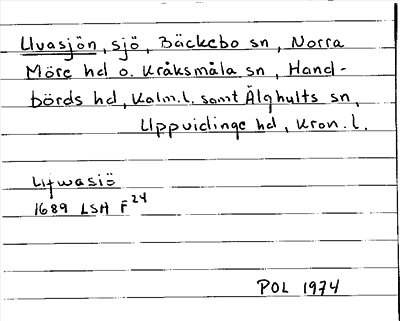 Uvasjön, sjö, Bäckebo sn, Norra
Möre hd o. Kråksmåla sn, Hand-
börds hd, Kalm.l. samt Älghults sn,
Uppvidinge hd, Kron.l.
Ufwasiö
1689 LSA F24
POL 1974